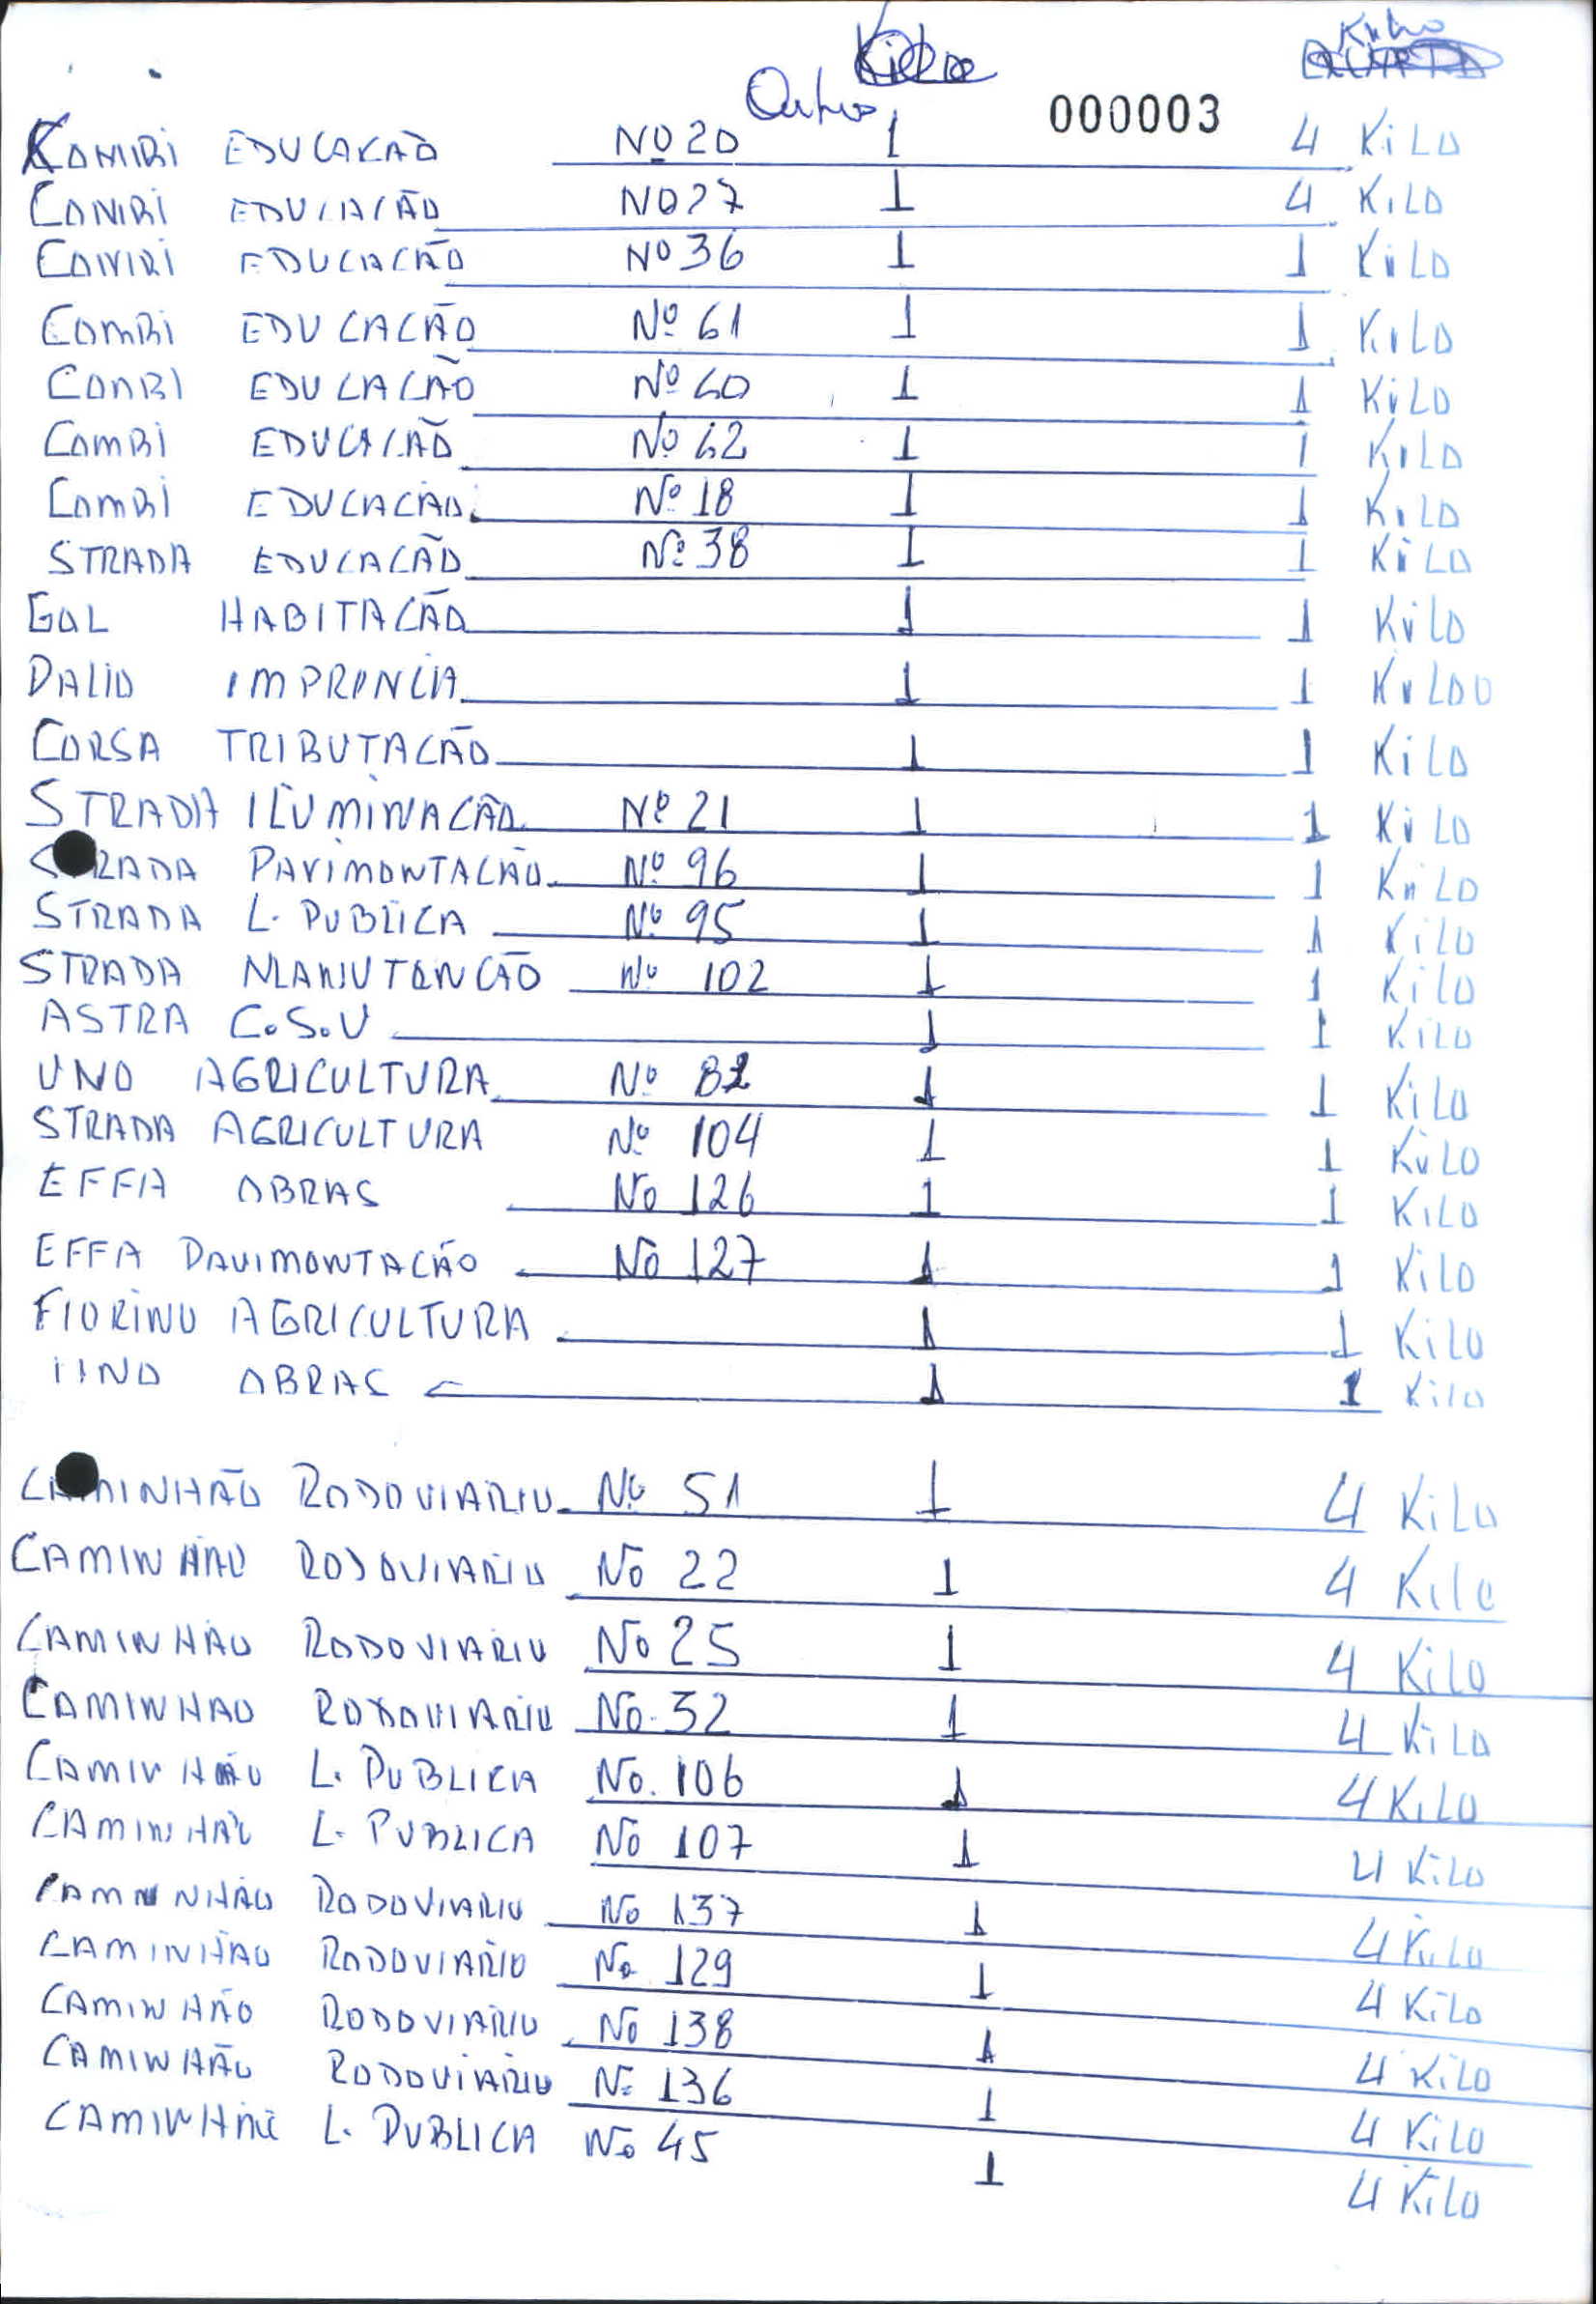 Kilo
Outros 000003
COMBI EDUCACÃO Nº 20 1 4 KiLO
COMBI EDUCACÃO Nº 27 1 4 KiLO
COMBI EDUCACÃO Nº 36 1 1 KiLO
COMBi EDUCACÃO Nº 61 1 1 KiLO
COMBI EDUCACÃO Nº 60 1 1 KiLO
COMBi EDUCACÃO Nº 62 1 1 KiLO
COMBi EDUCACÃO Nº 18 1 1 KiLO
STRADA EDUCACÃO Nº 38 1 1 KiLO
GOL HABITACÃO 1 1 KiLO
PALIO IMPRENCIA 1 1 KiLOO
CORSA TRIBUTACÃO 1 1 KiLO
STRADA ILUMINACÃO Nº 21 1 1 KiLO
STRADA PAVIMONTACÃO Nº 96 1 1 KiLO
STRADA L. PUBLICA Nº 95 1 1 KiLO
STRADA MANUTONCÃO Nº 102 1 1 KiLO
ASTRA C.S.U 1 1 KiLO
UNO AGRICULTURA Nº 82 1 1 KiLO
STRADA AGRICULTURA Nº 104 1 1 KiLO
EFFA OBRAS Nº 126 1 1 KiLO
EFFA PAVIMONTACÃO Nº 127 1 1 KiLO
FIORINO AGRICULTURA 1 1 KiLO
UNO OBRAS 1 1 KiLO
CAMINHÃO RODOVIARIO Nº 51 1 4 KiLO
CAMINHÃO RODOVIARIO Nº 22 1 4 KiLO
CAMINHÃO RODOVIARIO Nº 25 1 4 KiLO
CAMINHAO RODOVIARIO Nº 32 1 4 KiLO
CAMINHÃO L. PUBLICA Nº 106 1 4 KiLO
CAMINHÃO L. PUBLICA Nº 107 1 4 KiLO
CAMINHÃO RODOVIARIO Nº 137 1 4 KiLO
CAMINHÃO RODOVIARIO Nº 129 1 4 KiLO
CAMINHÃO RODOVIARIO Nº 138 1 4 KiLO
CAMINHÃO RODOVIARIO Nº 136 1 4 KiLO
CAMINHÃO L. PUBLICA Nº 45 1 4 KiLO